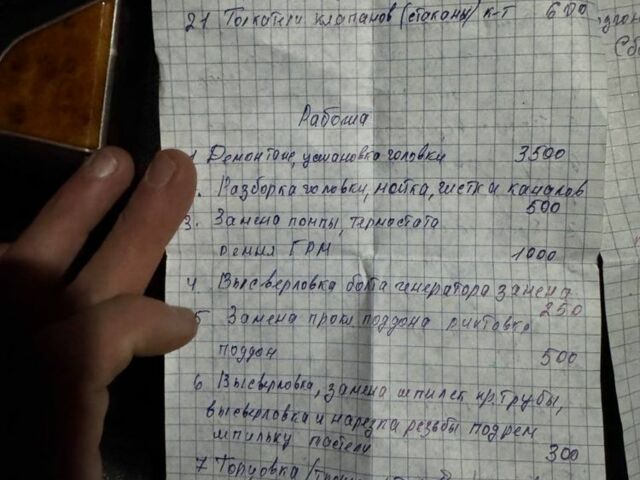 21 Толкатели клапанов (стаканы) к-т 600
Работа
1 Демонтаж, установка головки 3500
. Разборка головки, мойка, чистка каналов
500
3. Замена помпы, термостата
ремня ГРМ 1000
4 Высверловка болта генератора замена
250
5 Замена прокл. поддона рихтовка
поддон 500
6 Высверловка, замена шпилек пр. трубы,
высверловка и нарезка резьбы под рем
шпильку 300
7 Торцовка